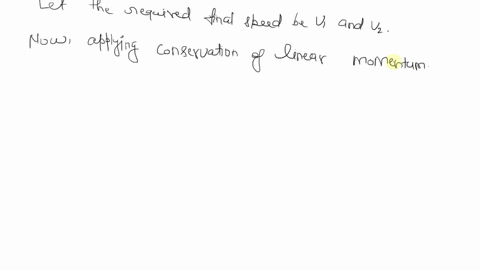 Let the required final speed be v₁ and v₂.
Now, applying conservation of linear momentum.